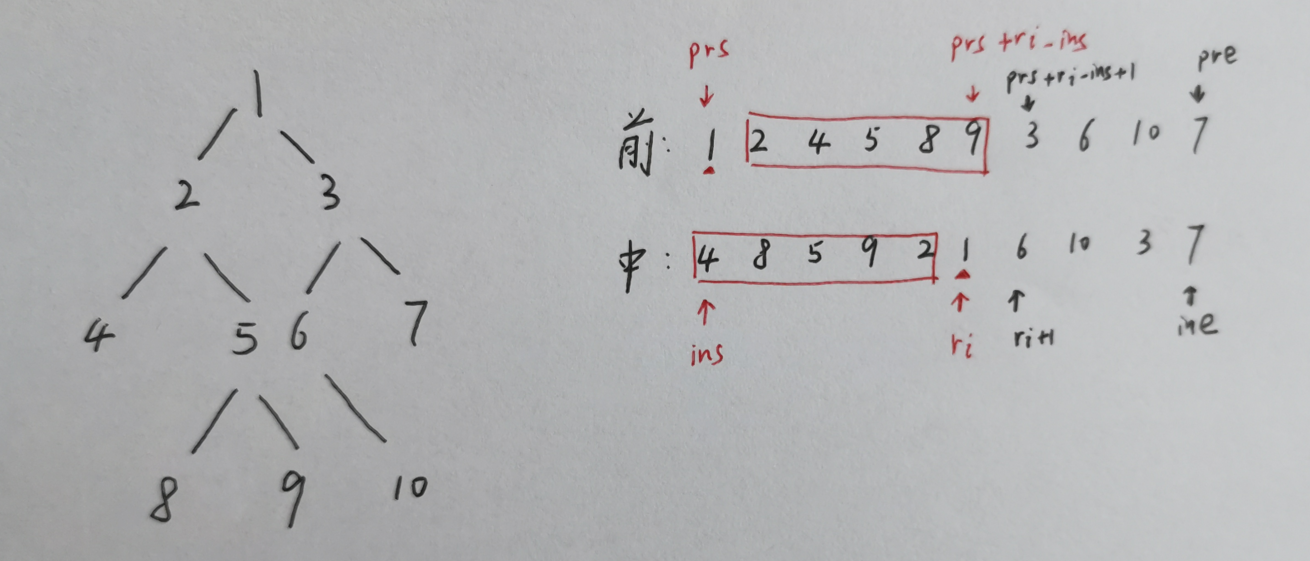 1
2 3
4 5 6 7
8 9 10
prs prs+ri-ins pre
prs+ri-ins+1
前: 1 2 4 5 8 9 3 6 10 7
中: 4 8 5 9 2 1 6 10 3 7
ins ri ri+1 ine